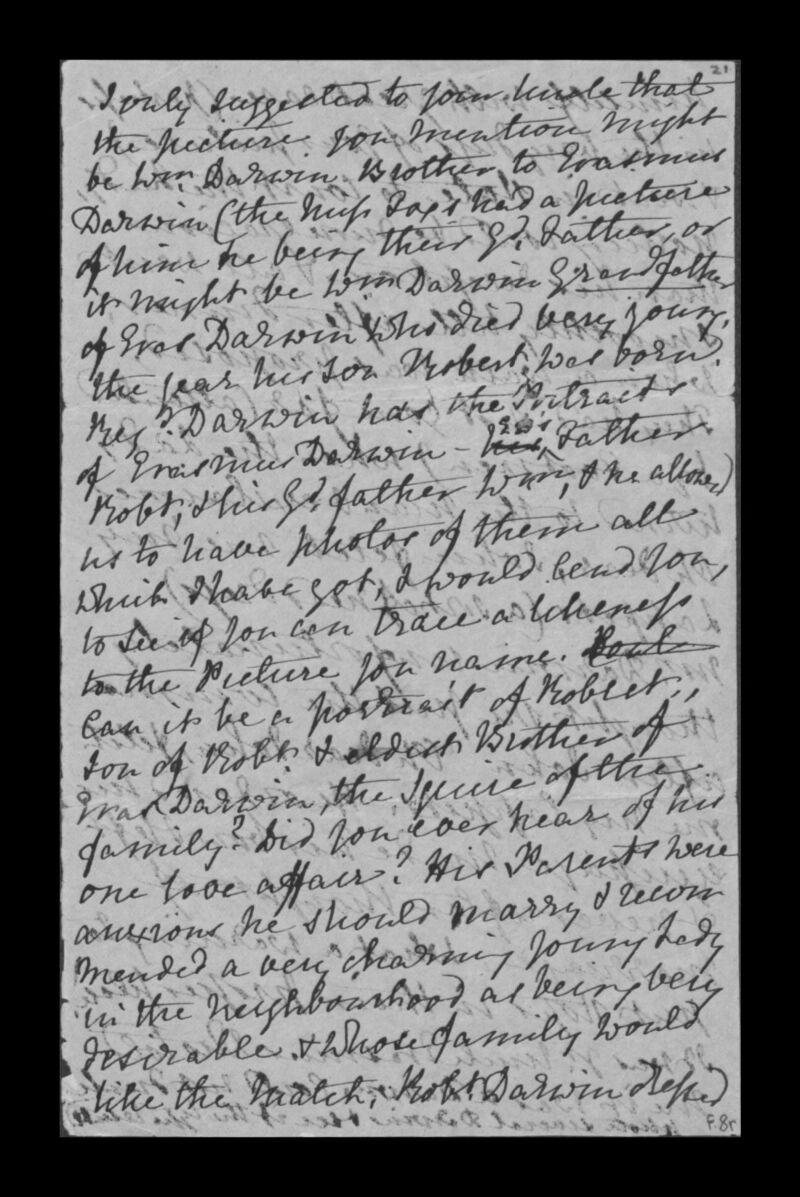 21
I only suggested to your Uncle that
the picture you mention might
be Wm. Darwin Brother to Erasmus
Darwin (the Miss Fox's had a picture
of him he being their Gd. Father, or
it might be Wm Darwin Grandfather
of Eras Darwin who died very young,
the year his son Robert, was born.
Regd. Darwin has the Portraits
of Erasmus Darwin - his E.D's Father
Robt, & his Gd. father Wm, & he allowed
us to have photos of them all
which I have got, I would lend you,
to see if you can trace a likeness
to the Picture you name. Coul
Can it be a portrait of Robert,
son of Robt & eldest Brother of
Eras Darwin, the Squire of the
family? Did you ever hear of his
one love affair? His Parents were
anxious he should marry & recom
mended a very charming young Lady
in the neighbourhood as being very
desirable & whose family would
like the match; Robt Darwin dressed
F.8r